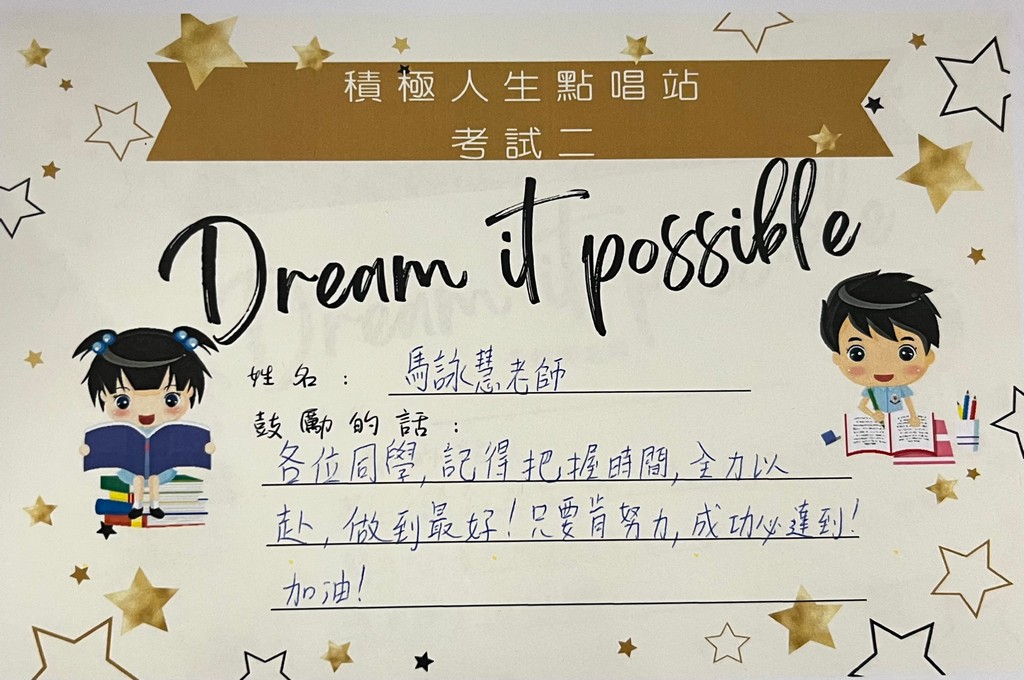 積極人生點唱站
考試二
Dream it possible
姓名： 馬詠慧老師
鼓勵的話：
各位同學,記得把握時間,全力以
赴,做到最好!只要肯努力,成功必達到!
加油!